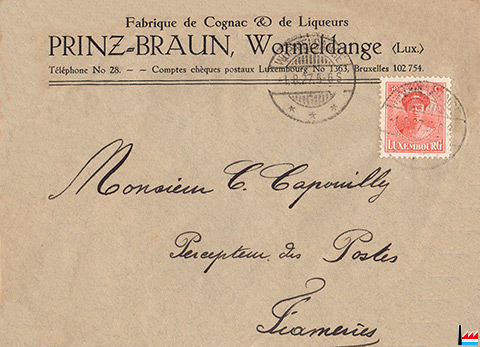 Fabrique de Cognac & de Liqueurs
PRINZ-BRAUN, Wormeldange (Lux.)
Téléphone No 28. - - Comptes chèques postaux Luxembourg No 1363, Bruxelles 102 754.
LUXEMBOURG
Monsieur C. Capouilly
Percepteur des Postes
Frameries